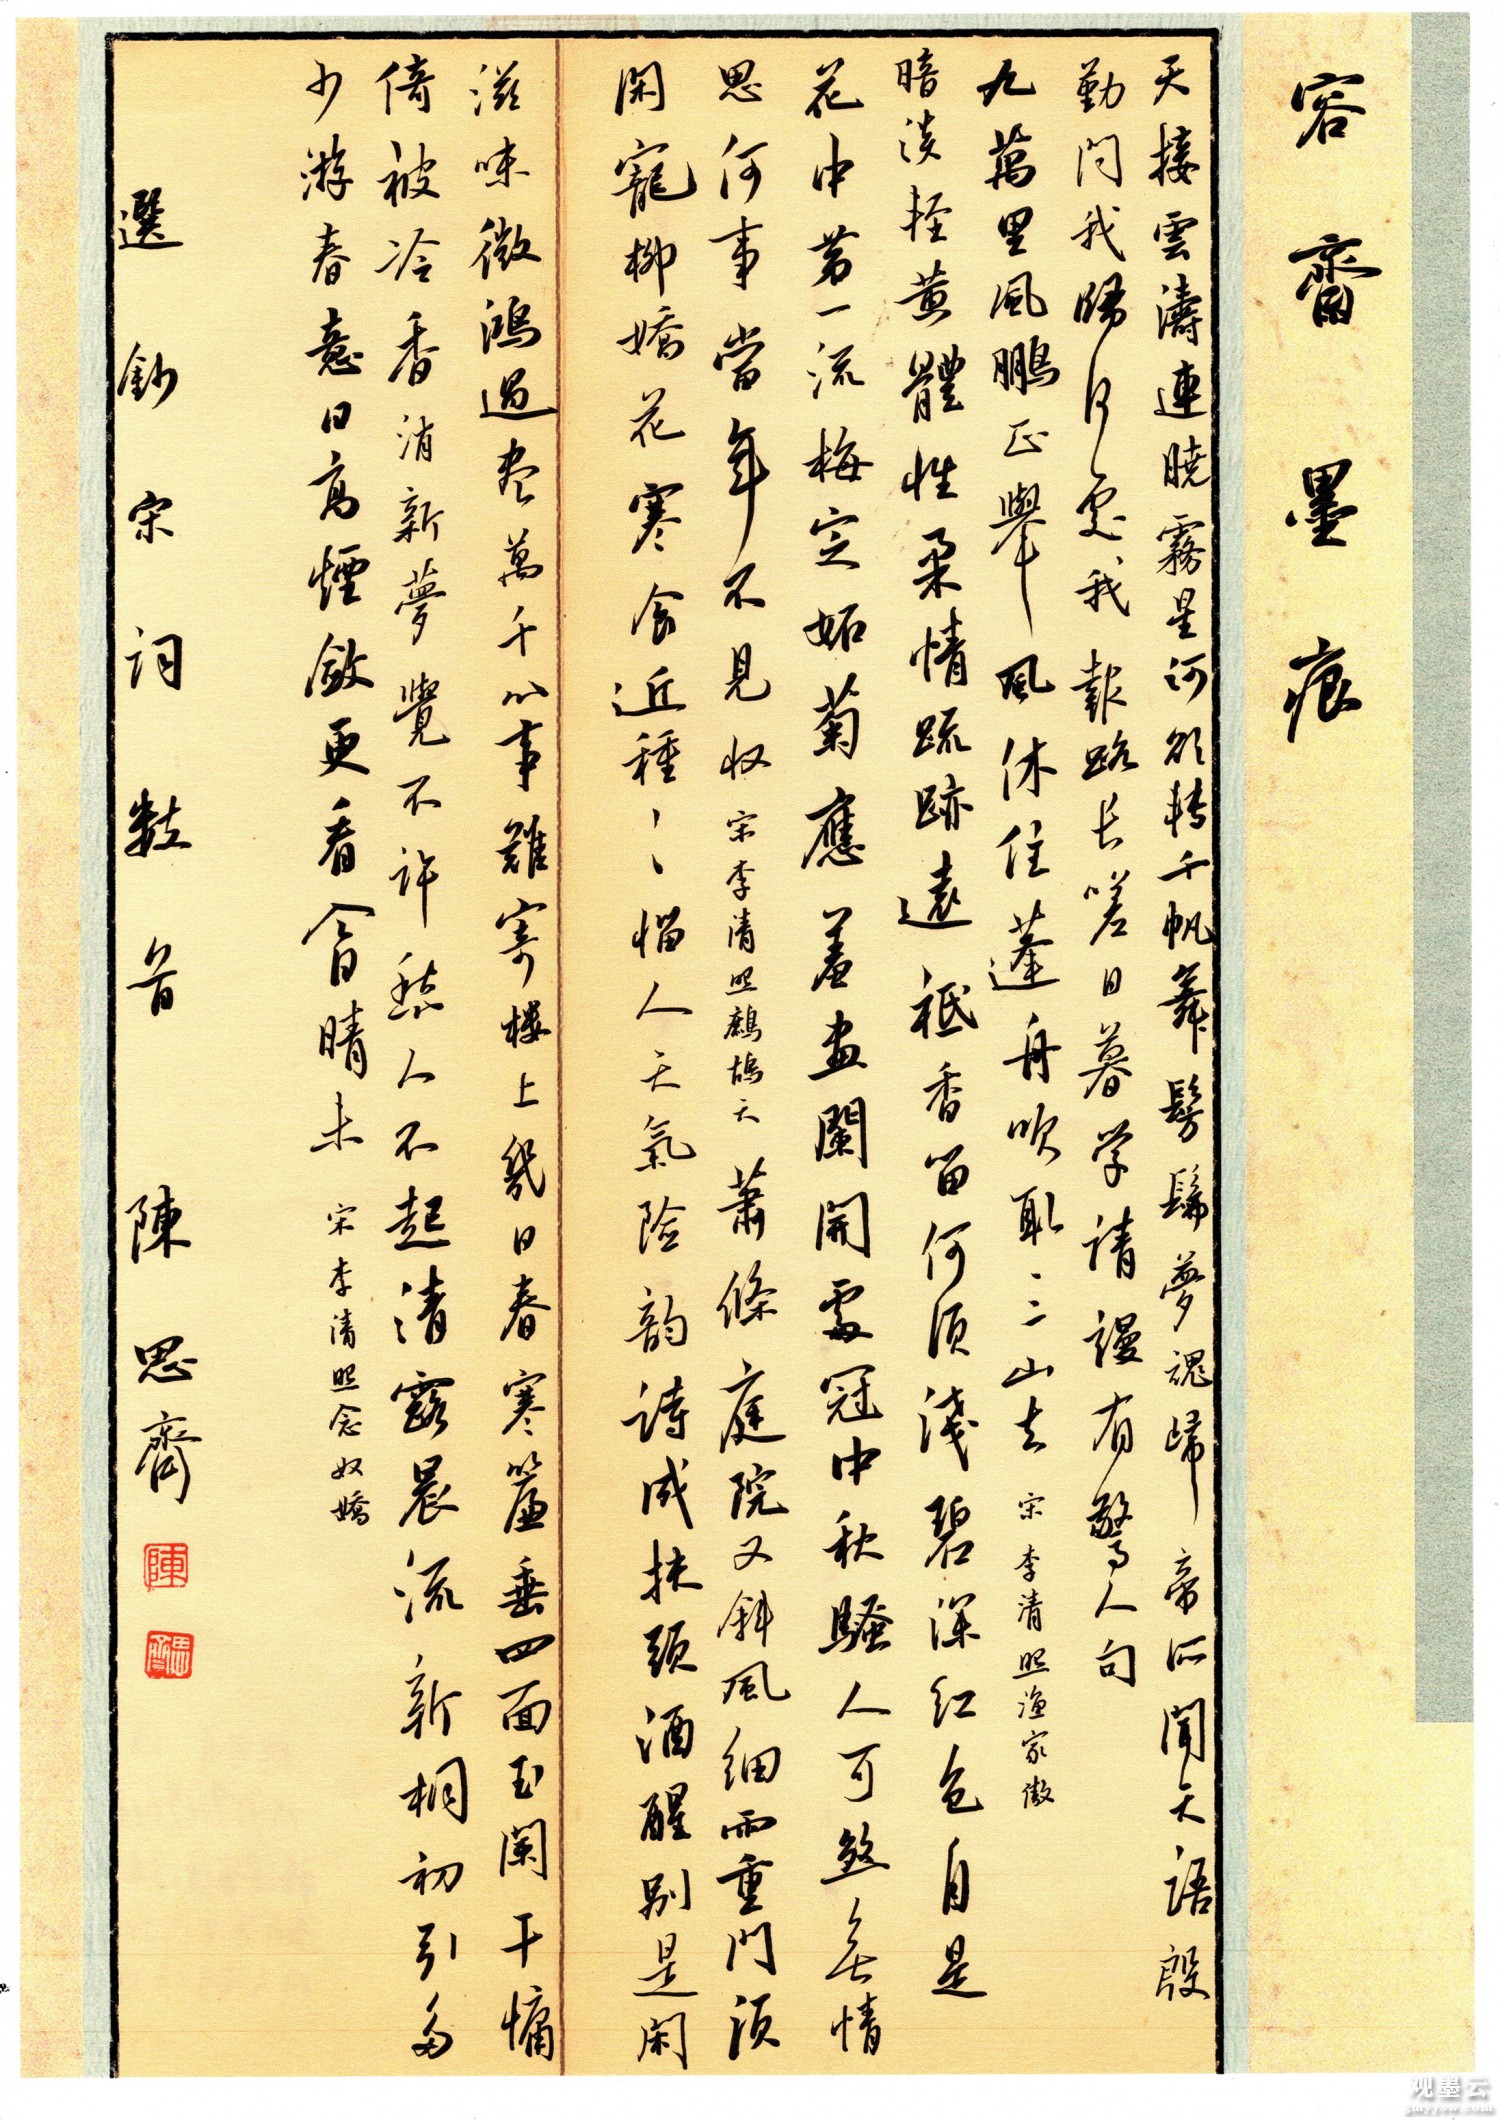 容齋墨痕
天接雲濤連曉霧星河欲轉千帆舞髣髴夢魂歸帝所聞天語殷
勤問我歸何處我報路長嗟日暮学詩謾有驚人句
九萬里風鵬正舉風休住蓬舟吹取三山去 宋李清照漁家傲
暗淡輕黄體性柔情疏跡遠祗香留何須淺碧深紅色自是
花中第一流梅定妬菊應羞畫闌開處冠中秋騷人可煞無情
思何事當年不見收 宋李清照鷓鴣天 蕭條庭院又斜風細雨重門須
閑寵柳嬌花寒食近種〻惱人天氣險韵詩成扶頭酒醒别是閑
滋味徵鴻過尽萬千心事難寄楼上幾日春寒簾垂四面玉闌干慵
倚被冷香消新夢覺不許愁人不起清露晨流新桐初引多
少游春意日高煙斂更看今日晴未 宋李清照念奴嬌
選鈔宋詞數首 陳思齊
陳
思齊
观墨云